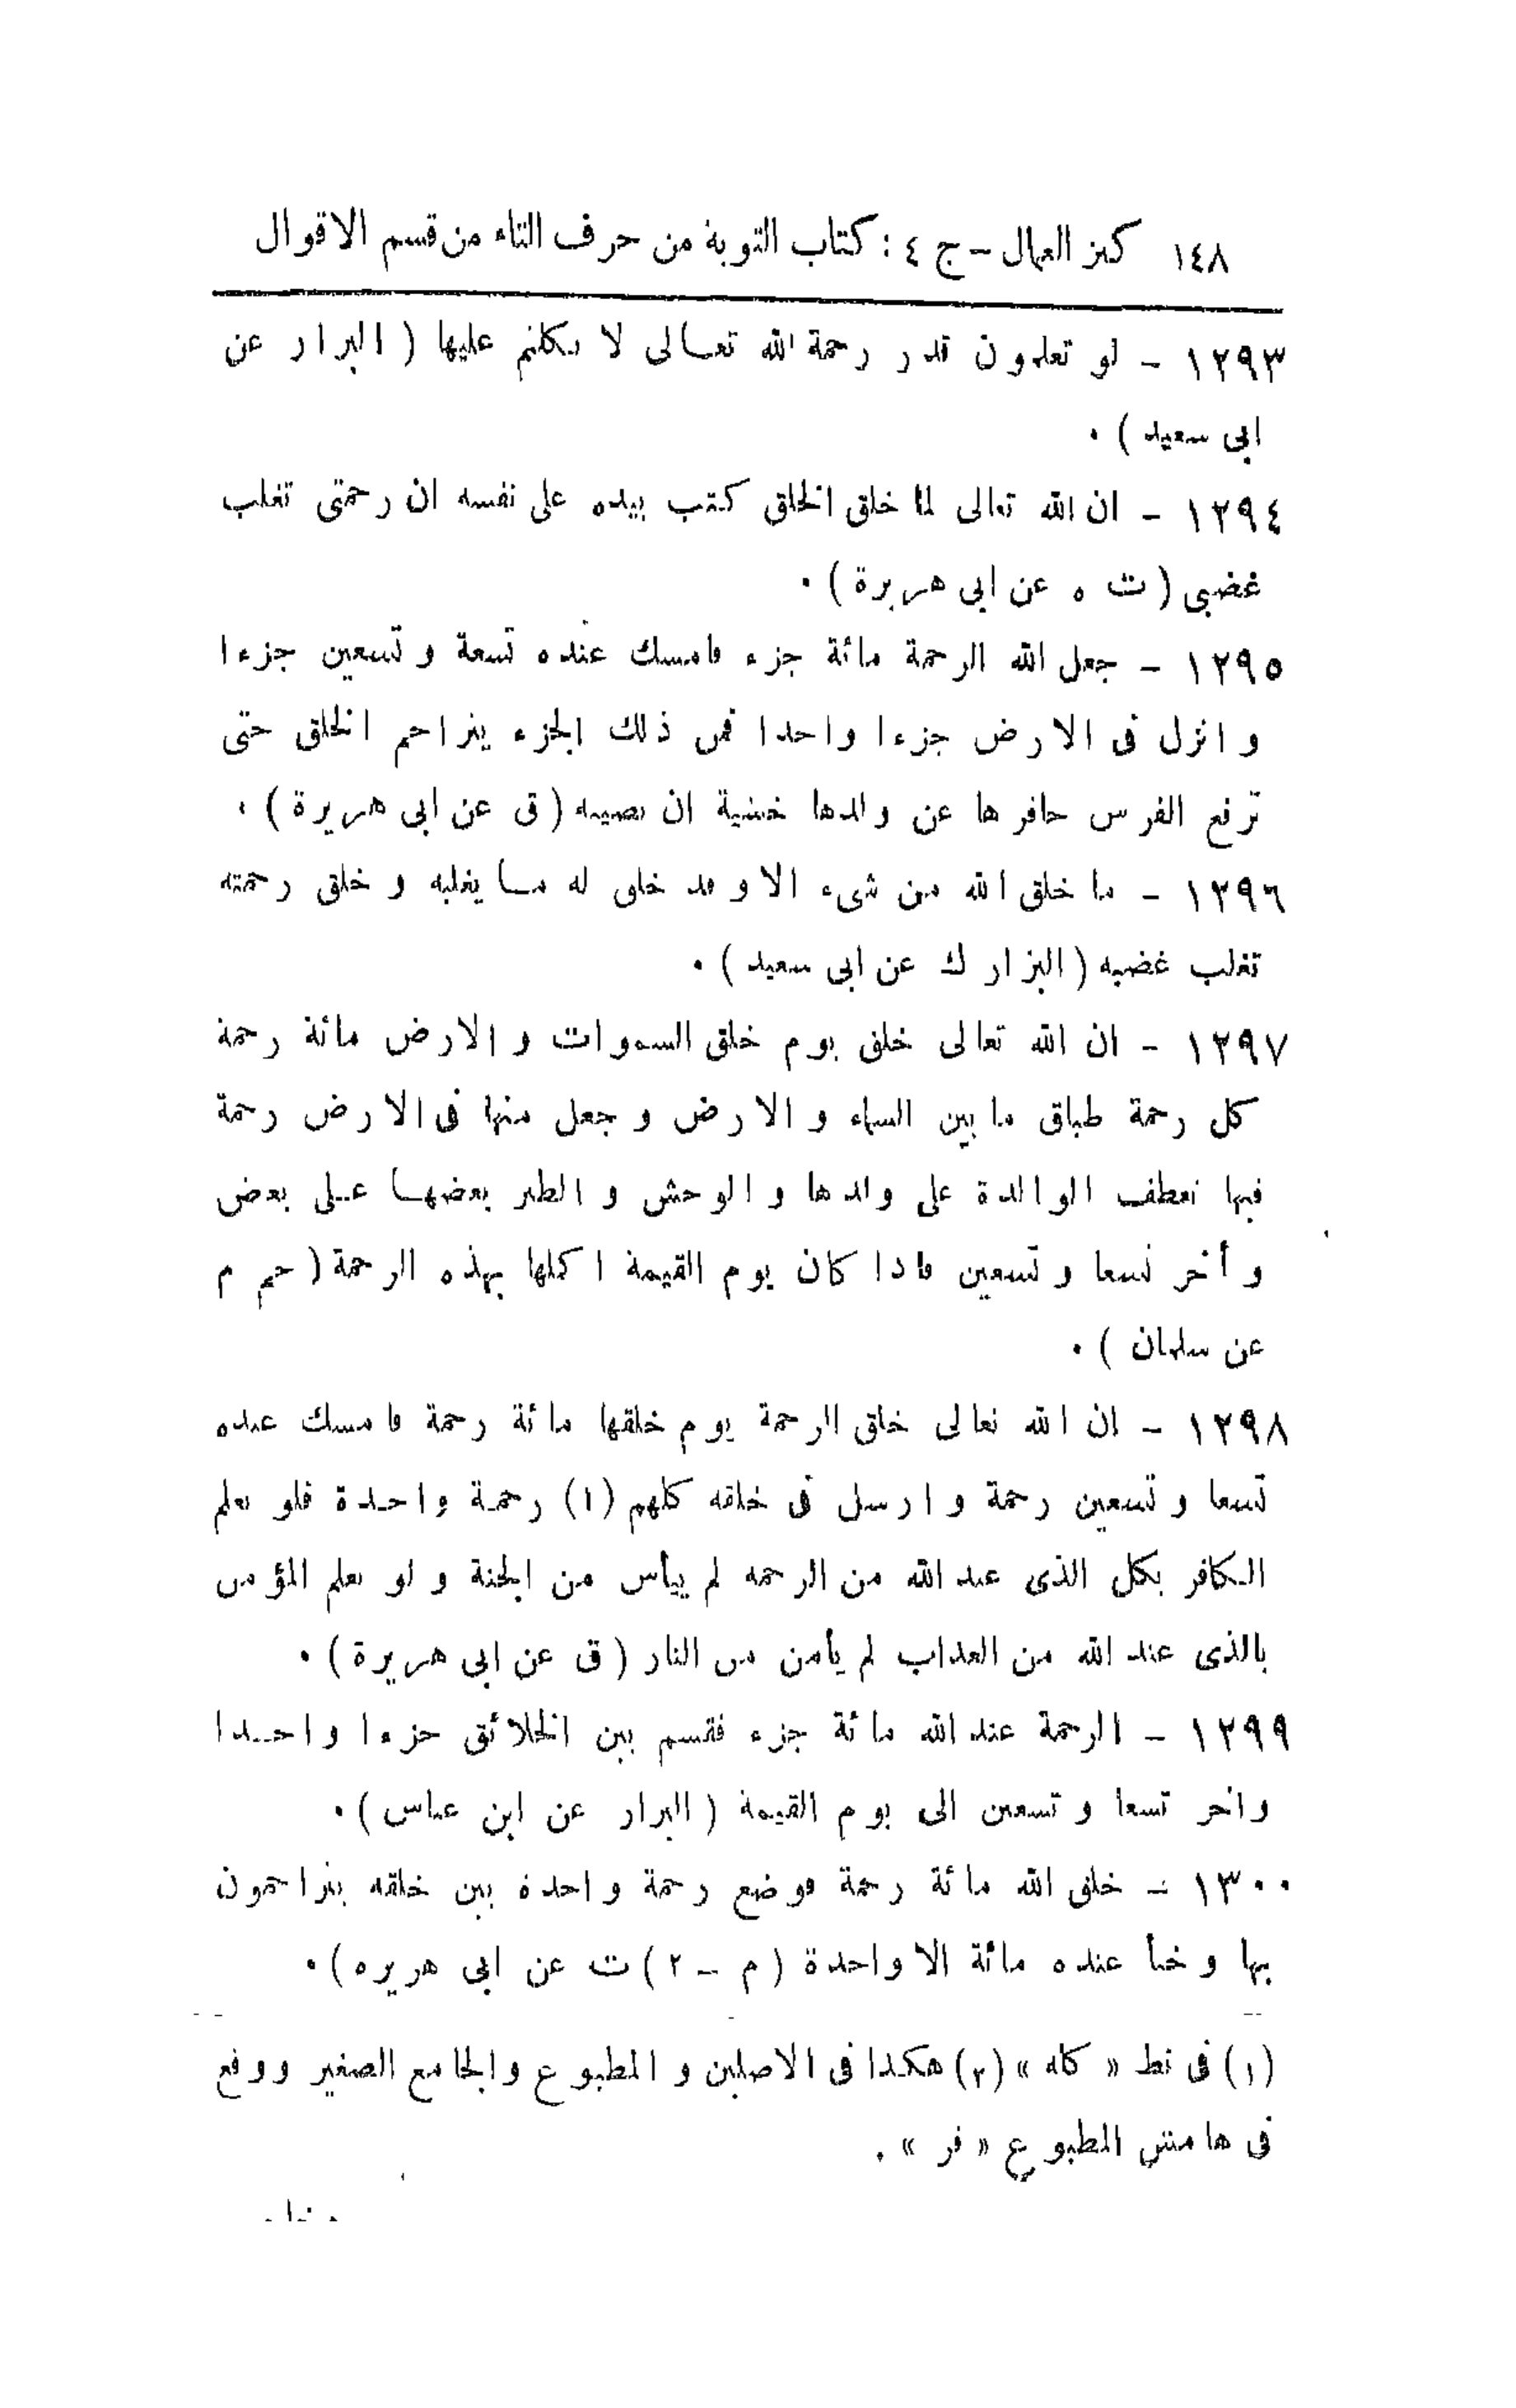 ١٤٨ كنز العمال – ج ٤ : كتاب التوبة من حرف التاء من قسم الاقوال
١٢٩٣ – لو تعلمون قدر رحمة الله تعالى لا تكلتم عليها ( البزار عن
ابى سعيد ) .
١٢٩٤ – ان الله تعالى لما خلق الخلق كتب بيده على نفسه ان رحمتى تغلب
غضبى ( ت ه عن ابى هريرة ) .
١٢٩٥ – جعل الله الرحمة مائة جزء فامسك عنده تسعة و تسعين جزءا
و انزل فى الارض جزءا واحدا فمن ذلك الجزء يتراحم الخلق حتى
ترفع الفرس حافرها عن ولدها خشية ان تصيبه ( ق عن ابى هريرة ) .
١٢٩٦ – ما خلق الله من شىء الا و قد خلق له ما يغلبه و خلق رحمته
تغلب غضبه ( البزار ك عن ابى سعيد ) .
١٢٩٧ – ان الله تعالى خلق يوم خلق السموات و الارض مائة رحمة
كل رحمة طباق ما بين السماء و الارض و جعل منها فى الارض رحمة
فبها تعطف الوالدة على ولدها و الوحش و الطير بعضها على بعض
و أخر تسعا و تسعين فاذا كان يوم القيمة اكملها بهذه الرحمة ( حم م
عن سلمان ) .
١٢٩٨ – ان الله تعالى خلق الرحمة يوم خلقها مائة رحمة فامسك عنده
تسعا و تسعين رحمة و ارسل فى خلقه كلهم (١) رحمة واحدة فلو يعلم
الكافر بكل الذى عند الله من الرحمة لم ييأس من الجنة و لو يعلم المؤمن
بالذى عند الله من العذاب لم يأمن من النار ( ق عن ابى هريرة ) .
١٢٩٩ – الرحمة عند الله مائة جزء فقسم بين الخلائق جزءا واحدا
واخر تسعا و تسعين الى يوم القيمة ( البزار عن ابن عباس ) .
١٣٠٠ – خلق الله مائة رحمة فوضع رحمة واحدة بين خلقه يتراحمون
بها و خبأ عنده مائة الا واحدة ( م – ٢ ) ت عن ابى هريرة ) .
(١) فى نط « كله » (٢) هكذا فى الاصلين و المطبوع والجامع الصغير ووقع
فى هامش المطبوع « فر » .